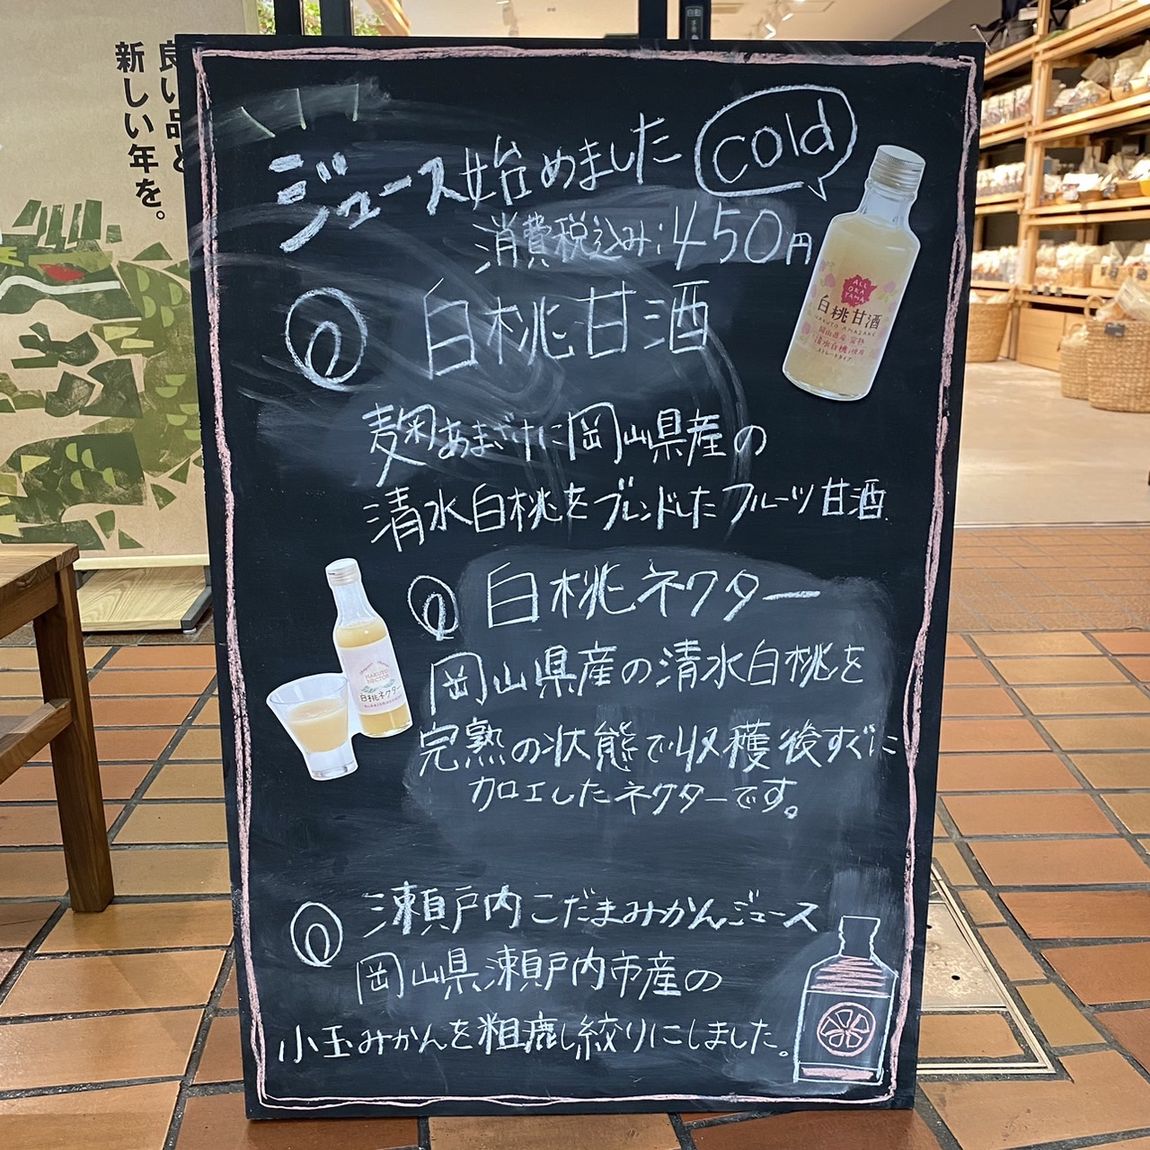 良い品と
新しい年を。
自動
ジュース始めました
cold
消費税込み:450円
白桃甘酒
麹あまざけに岡山県産の
清水白桃をブレンドしたフルーツ甘酒.
ALL
OKA
YAMA
白桃甘酒
HAKUTO AMAZAKE
岡山県産
清水白桃使用
ストレートタイプ
白桃ネクター
岡山県産の清水白桃を
完熟の状態で収穫後すぐに
加工したネクターです。
HAKUTO
NECTOR
白桃ネクター
瀬戸内こだまみかんジュース
岡山県瀬戸内市産の
小玉みかんを粗漉し絞りにしました。